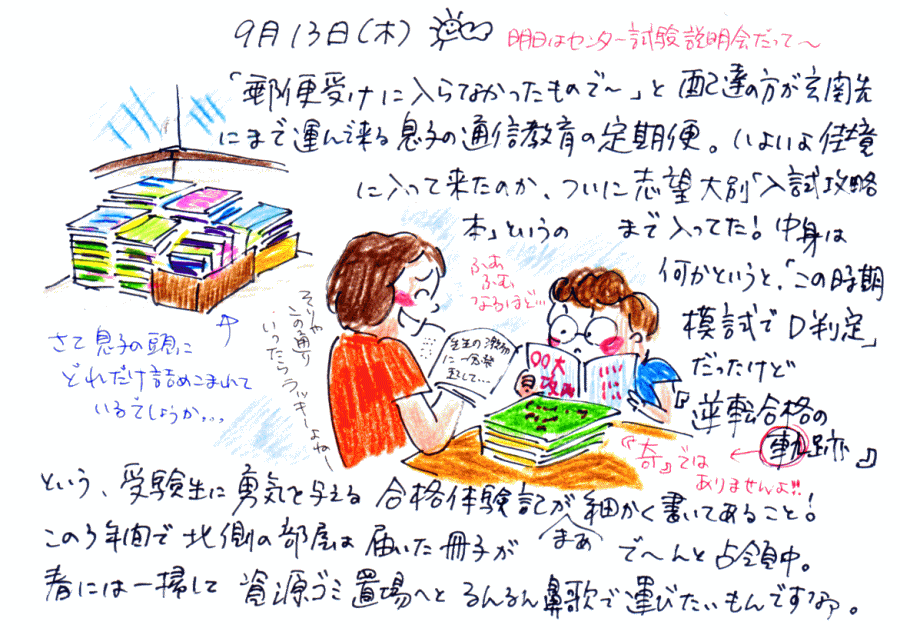 9月13日(木)
明日はセンター試験説明会だって〜
「郵便受けに入らなかったもので〜」と配達の方が玄関先
にまで運んで来る息子の通信教育の定期便。いよいよ佳境
に入って来たのか、ついに志望大別「入試攻略
本」というの まで入ってた!中身は
何かというと、「この時期
模試でD判定」
だったけど
『逆転合格の
軌跡』
『奇』では
ありませんよ!!
ふむ
ふむ
なるほど…
〇〇大
攻略
先生の激励
に一念発
起して…
そりゃ
この通り
いったらラッキーよねー
さて息子の頭に
どれだけ詰めこまれて
いるでしょうか…
という、受験生に勇気を与える合格体験記が細かく書いてあること!
この3年間で北側の部屋は届いた冊子が まあ で〜んと占領中。
春には一掃して資源ゴミ置場へと るんるん鼻歌で運びたいもんですなァ。